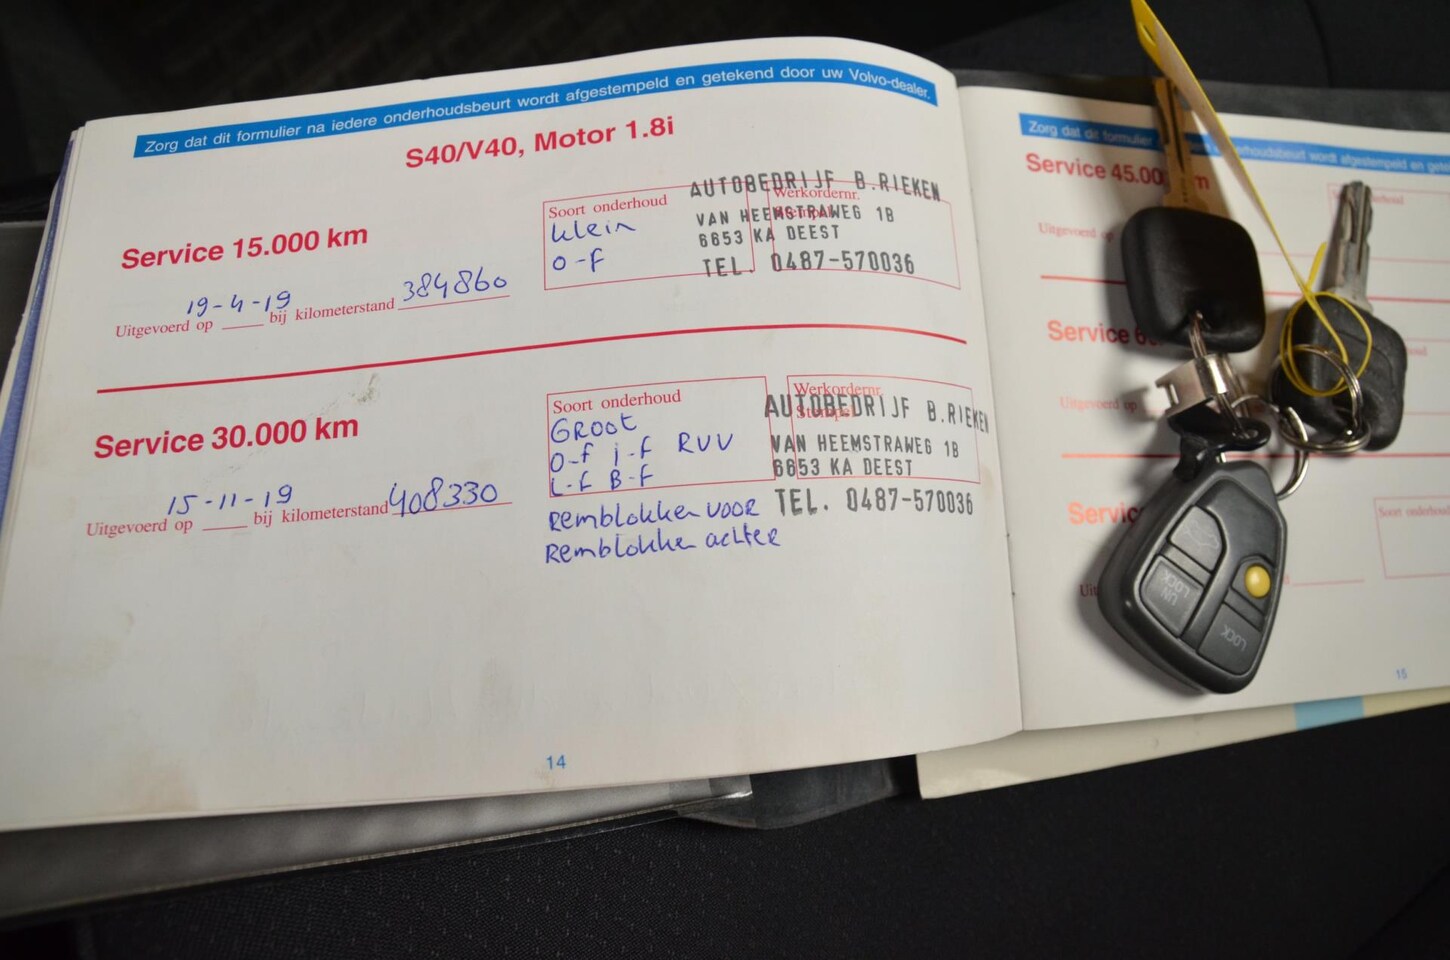 Zorg dat dit formulier na iedere onderhoudsbeurt wordt afgestempeld en getekend door uw Volvo-dealer.
S40/V40, Motor 1.8i
Service 15.000 km
Soort onderhoud
klein
o-f
Werkordernr.
AUTOBEDRIJF B.RIEKEN
VAN HEEMSTRAWEG 1B
6653 KA DEEST
TEL. 0487-570036
19-4-19
384860
Uitgevoerd op ____ bij kilometerstand
Service 30.000 km
Soort onderhoud
GROOT
O-f i-f RUV
L-f B-f
Remblokken voor
Remblokken achter
Werkordernr.
Stempel
AUTOBEDRIJF B.RIEKEN
VAN HEEMSTRAWEG 1B
6653 KA DEEST
TEL. 0487-570036
15-11-19
408330
Uitgevoerd op ____ bij kilometerstand
14
Zorg dat dit formulier
Service 45.00 km
Uitgevoerd op
Service
Uitgevoerd op
Soort onderhoud
15
UN
LOCK
LOCK